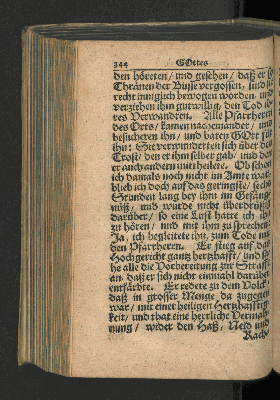 344 GOttes
den höreten / und gesehen / daß er so
Thränen der Busse vergossen, sind sie
recht inniglich bewogen worden / und
verziehen ihm gutwillig, den Tod ih-
res Verwandten. Alle Pfarrherrn
des Orts / kamen nacheinander / und
besucheten ihn / und baten GOtt für
ihn: Sie verwunderten sich über den
Trost / den er ihm selber gab / und das
er auch andern mittheilete. Ob schon
ich damals noch nicht im Amte war /
blieb ich doch auf das geringste / sechs
Stunden lang bey ihm im Gefäng-
nüß / und wurde nicht überdrüßig
darüber / so eine Lust hatte ich ihn
zu hören / und mit ihm zu sprechen.
Ja, ich begleitete ihn, zum Tode mit
den Pfarrherrn. Er stieg auf das
Hochgericht gantz hertzhafft / und sa-
he alle die Vorbereitung zur Straffe
an, daß er sich nicht einmahl darüber
entfärbte. Er redete zu dem Volck /
daß in grosser Menge da zugegen
war / mit einer heiligen Hertzhafftig-
keit / und that eine herrliche Vermah-
nung / wider den Haß, Neid und
Rach-